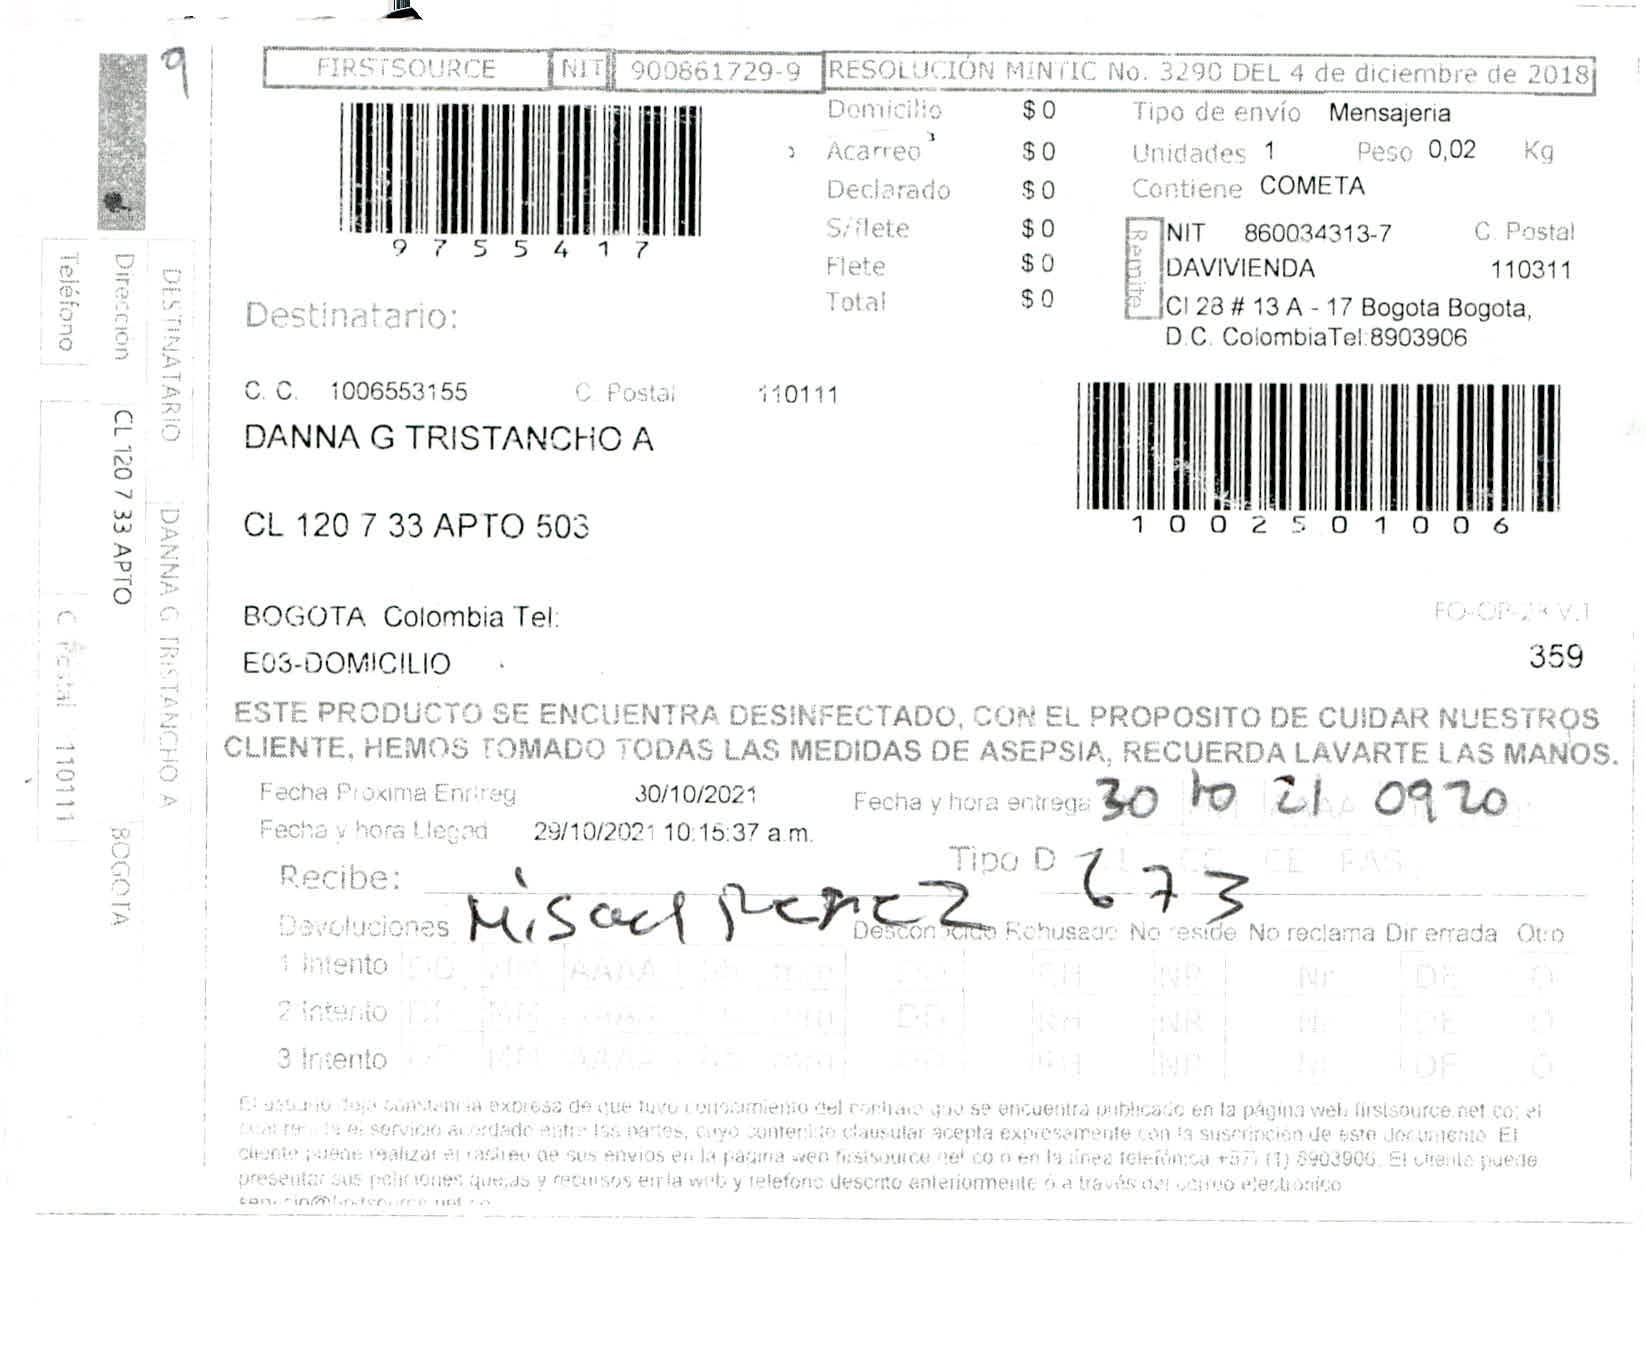 9
FIRSTSOURCE NIT 900861729-9 RESOLUCIÓN MINTIC No. 3290 DEL 4 de diciembre de 2018
9755417
Domicilio $ 0
Acarreo $ 0
Declarado $ 0
S/flete $ 0
Flete $ 0
Total $ 0
Tipo de envío Mensajeria
Unidades 1 Peso 0,02 Kg
Contiene COMETA
Remite
NIT 860034313-7 C. Postal
DAVIVIENDA 110311
Cl 28 # 13 A - 17 Bogota Bogota,
D.C. ColombiaTel:8903906
Destinatario:
C. C. 1006553155 C. Postal 110111
DANNA G TRISTANCHO A
CL 120 7 33 APTO 503
1002501006
BOGOTA Colombia Tel:
E03-DOMICILIO
FO-OP-23 V.1
359
ESTE PRODUCTO SE ENCUENTRA DESINFECTADO, CON EL PROPOSITO DE CUIDAR NUESTROS
CLIENTE, HEMOS TOMADO TODAS LAS MEDIDAS DE ASEPSIA, RECUERDA LAVARTE LAS MANOS.
Fecha Proxima Entreg 30/10/2021 Fecha y hora entrega 30 10 21 0920
Fecha y hora Llegad 29/10/2021 10:15:37 a.m.
Tipo D CE PAS
Recibe: Misael Perez 673
Devoluciones Desconocido Rehusado No reside No reclama Dir errada Otro
1 Intento DD MM AAAA RH NR Nr DE O
2 Intento DD MM AAAA DD RH NR Nr DE O
3 Intento MM AAAA RH NR Nr DE O
El usuario deja constancia expresa de que tuvo conocimiento del contrato que se encuentra publicado en la página web firstsource.net.co; el
cual regula el servicio acordado entre las partes, cuyo contenido clausular acepta expresamente con la suscripción de este documento. El
cliente puede realizar el rastreo de sus envios en la página web firstsource.net.co o en la línea telefónica +57 (1) 8903906. El cliente puede
presentar sus peticiones quejas y recursos en la web y telefono descrito anteriormente o a través del correo electrónico
servicio@firstsource.net.co
DESTINATARIO DANNA G TRISTANCHO A
Dirección CL 120 7 33 APTO BOGOTA
Teléfono C. Postal 110111